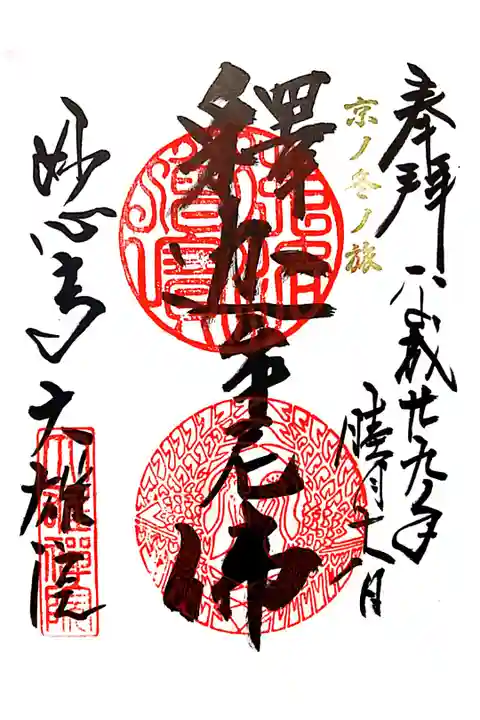 奉拝
平成廿九年
睦月
京ノ冬ノ旅
釋迦牟尼佛
妙心寺大雄院